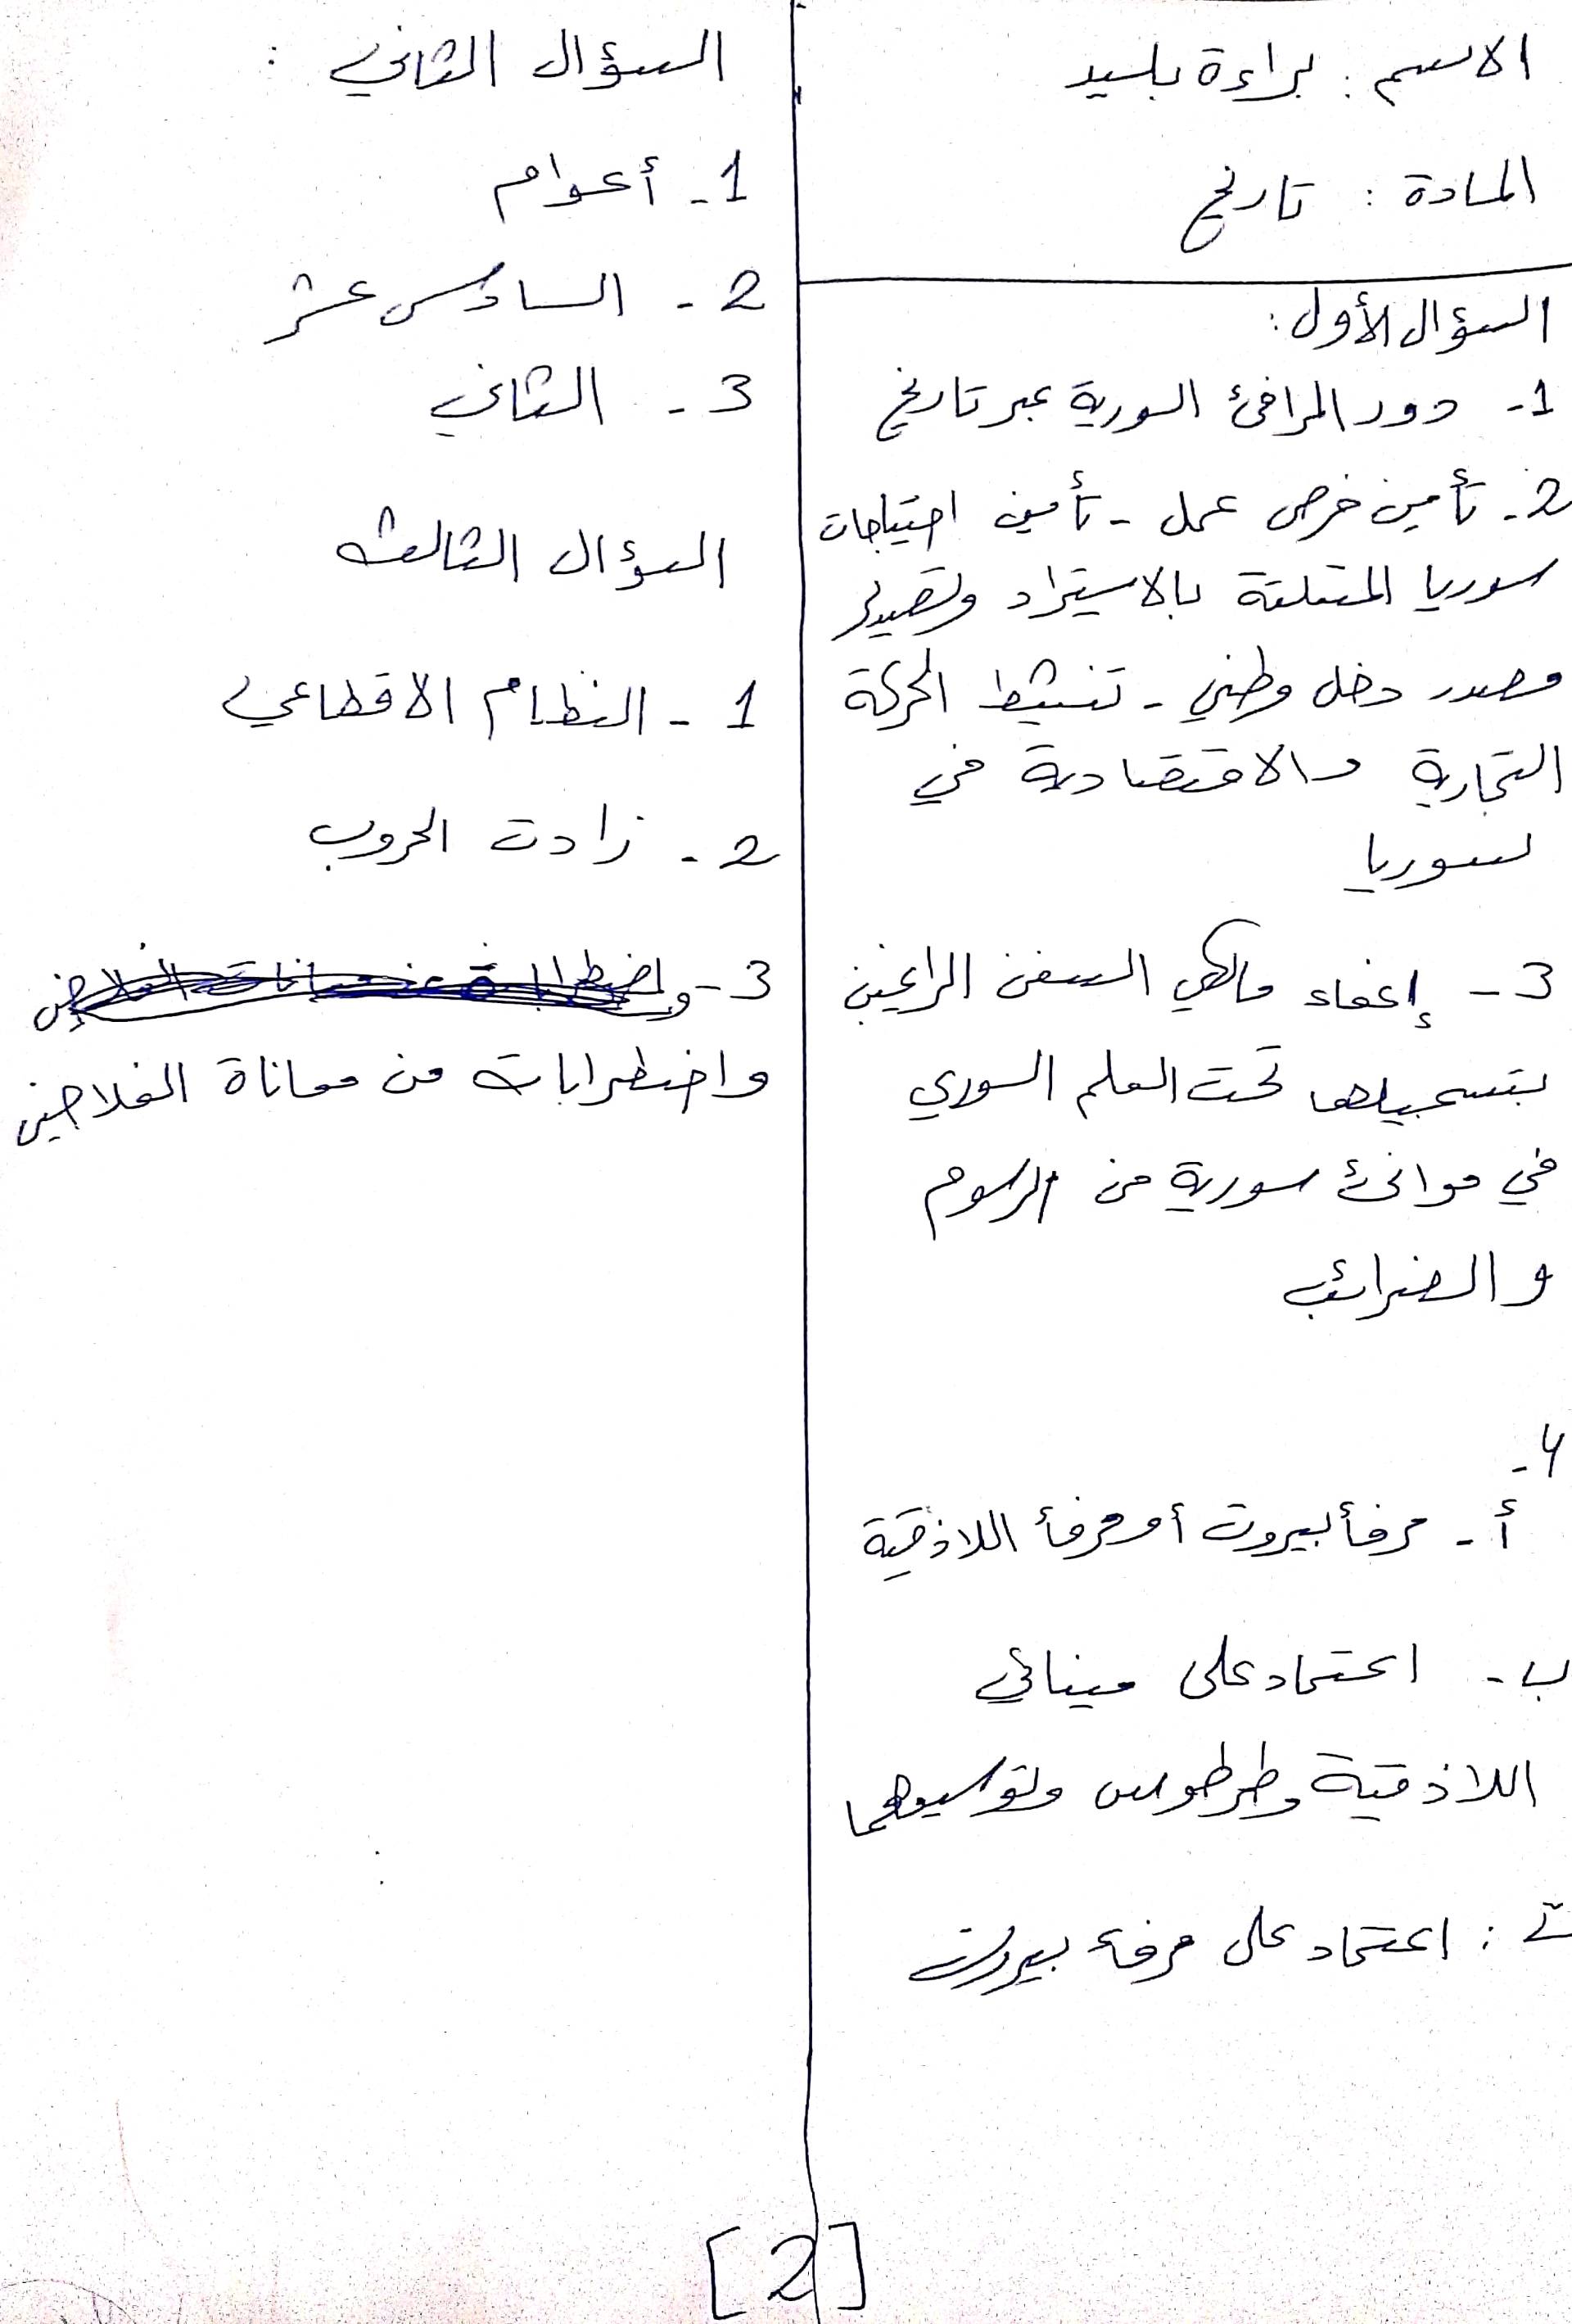 الاسم : براءة بلسيد
المادة : تاريخ
السؤال الأول :
1- دور المرافئ السورية عبر تاريخ
2- تأمين فرص عمل - تأمين احتياجات
سوريا المتلتة بالاستيراد وتصدير
مصدر دخل وطني - تنشيط الحركة
التجارية والاقتصادية في
سوريا
3- إعفاء مالكي السفن الراغبين
بتسجيلها تحت العلم السوري
في موانئ سورية من الرسوم
والضرائب
4-
أ- مرفأ بيروت أو مرفأ اللاذقية
ب- اعتماد على مينائي
اللاذقية وطرطوس وتوسيعهما
ت : اعتماد على مرفاء بيروت
السؤال الثاني :
1- أعوام
2- السادس عشر
3- الثاني
السؤال الثالث
1- النظام الاقطاعي
2- زادت الحروب
3-
واضطرابات من معاناة الفلاحين
[2]